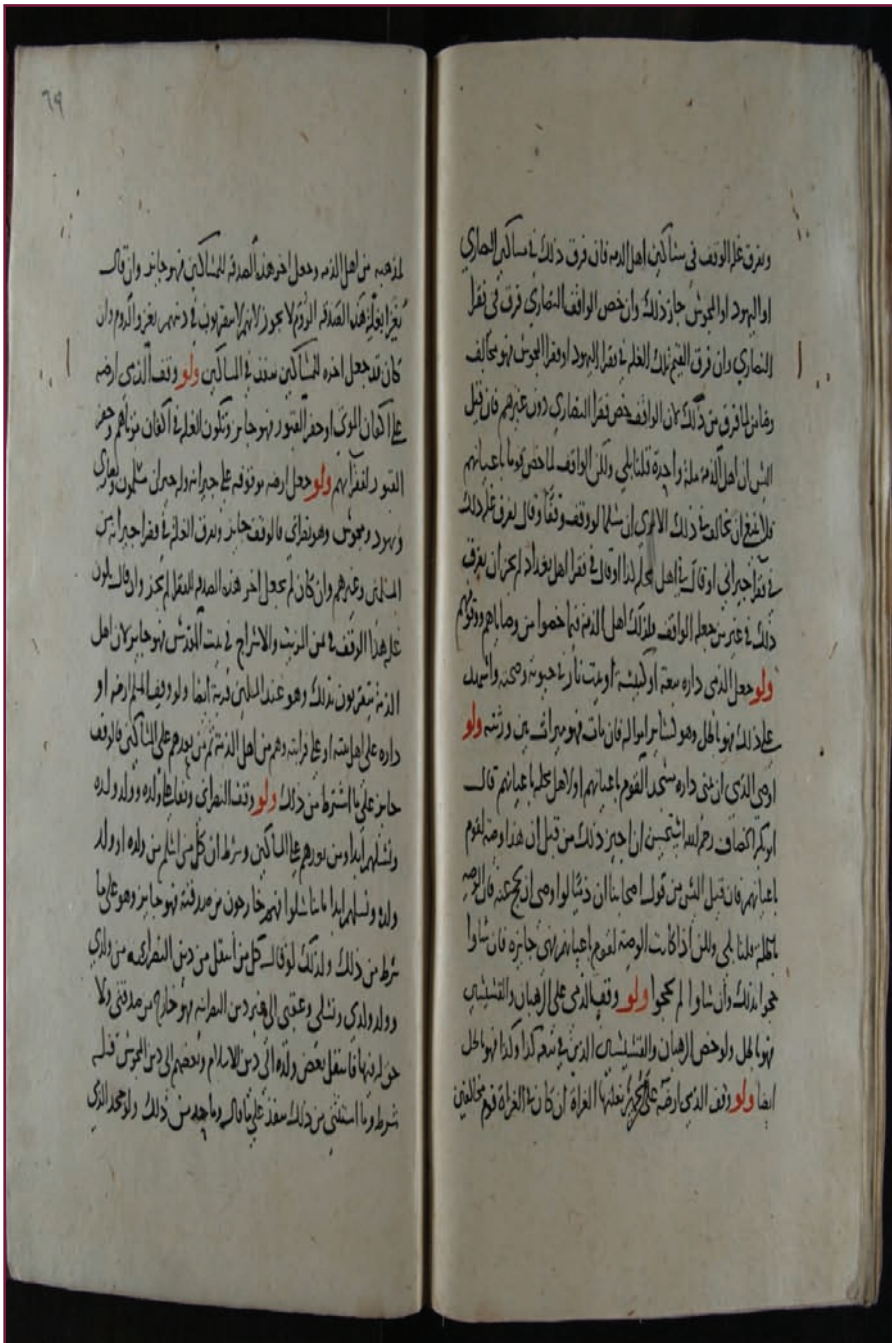 وتفرق غلة الوقف في مساكين اهل الذمة فان فرق ذلك في مساكين النصاري
او اليهود او المجوس جاز ذلك وان خص الواقف النصاري فرق في فقرا
النصاري وان فرق القيم تلك الغلة في فقرا اليهود او فقرا المجوس فهو مخالف
وضامن لما فرق من ذلك لان الواقف خص فقرا النصاري دون غيرهم فان قيل
اليس ان اهل الذمة ملة واحدة قلنا بلي ولكن الواقف لما خص قوما باعيانهم
فلا ينبغي ان يخالف في ذلك الا تري ان مسلما لو وقف وقفا وقال يفرق غلة ذلك
في فقرا جيراني او قال في اهل محلة كذا او قال في فقرا اهل بغداد لم يجز ان يفرق
ذلك في غير من جعله الواقف فكذلك اهل الذمة فيما خصوا من وصاياهم ووقوفهم
ولو جعل الذمي داره بيعة او كنيسة او بيت نار في حيوته وصحته واشهد
علي ذلك فهو باطل وهو كساير امواله فان مات فهو ميراث بين ورثته ولو
اوصي الذمي ان تبني داره مسجدا لقوم باعيانهم او لاهل محلة باعيانهم قال
ابو بكر الخصاف رحمه الله استحسن ان اجيز ذلك من قبل ان هذا وصية لقوم
باعيانهم فان قيل اليس من قول اصحابنا ان ذميا لو اوصي ان يحج عنه فان الوصية
باطلة قلنا بلي ولكن اذا كانت الوصية لقوم باعيانهم فهي جايزة فان شاوا
حجوا بذلك وان شاوا لم يحجوا ولو وقف الذمي علي الرهبان والقسيسين
فهو باطل ولو خص الرهبان والقسيسين الذين في بيعة كذا وكذا فهو باطل
ايضا ولو وقف الذمي ارضه علي ان يغزي بغلتها الغزاة ان كان في الغزاة قوم مخالفين
٦٩
لمذهبه من اهل الذمة وجعل اخر هذه الصدقة للمساكين فهو جايز وان قال
يغزا بغلة هذه الصدقة الروم لا يجوز لانهم لا يتقربون في دينهم بغزو الروم وان
كان قد جعل اخره للمساكين ينفذ في المساكين ولو وقف الذمي ارضه
علي اكفان الموتي او حفر القبور فهو جايز وتكون الغلة في اكفان موتاهم وحفر
القبور لفقرايهم ولو جعل ارضه موقوفة علي جيرانه وله جيران مسلمون ونصاري
ويهود ومجوس وهو نصراني فالوقف جايز وتفرق الغلة في فقرا جيرانه من
المسلمين وغيرهم وان كان لم يجعل اخر هذه الصدقة للفقرا لم يجز وان قال تكون
غلة هذا الوقف في ثمن الزيت والاسراج في بيت المقدس فهو جايز لان اهل
الذمة يتقربون بذلك وهو عند المسلمين قربة ايضا ولو وقف المسلم ارضه او
داره علي اهل بيته او علي قرابته وهم من اهل الذمة ثم من بعدهم علي المساكين فالوقف
جايز علي ما اشترط من ذلك ولو وقف النصراني وقفا علي ولده وولد ولده
ونسلهم ابدا ومن بعدهم علي المساكين وشرط ان كل من اسلم من ولده او ولد
ولده ونسلهم ابدا ما تناسلوا فهم خارجون من صدقته فهو جايز وهو علي ما
شرط من ذلك وكذلك لو قال كل من انتقل من دين النصرانيه من ولدي
وولد ولدي ونسلي وعقبي الي غير دين النصرانيه فهو خارج من صدقتي ولا
حق له فيها فانتقل بعض ولده الي دين الاسلام وبعضهم الي دين المجوس قبله
شرطه وما استثني من ذلك ينفذ علي ما قال وما حده من ذلك ولو جحد الذمي